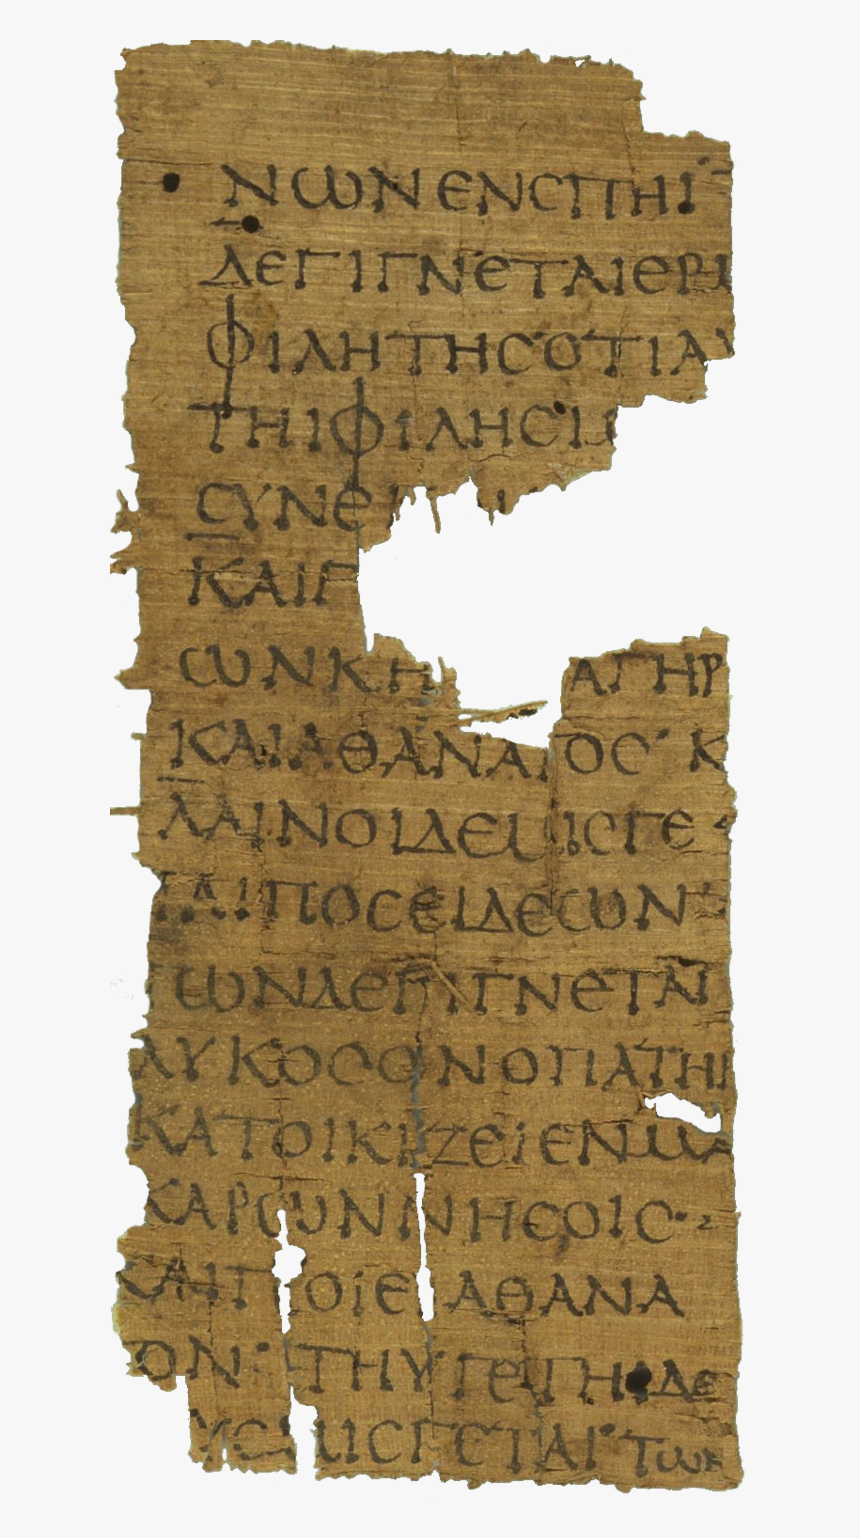 ΝΩΝ ΕΝ ΣΠΗΙ
ΔΕ ΓΙΓΝΕΤΑΙ ΕΡΜ
ΦΙΛΗΤΗΣ ΟΤΙ ΑΥ
ΤΗΙ ΦΙΛΗΣΙΜ
ΣΥΝΕ
ΚΑΙ Π
ΩΝ ΚΗ ΑΓΗΡ
ΚΑΙ ΑΘΑΝΑΤΟΣ· Κ
ΛΑΙΝΟΙ ΔΕ ΜΙΣΓΕ
ΤΑΙ ΠΟΣΕΙΔΕΩΝ
ΤΩΝ ΔΕ ΓΙΓΝΕΤΑΙ
ΛΥΚΟΣ ΟΝ Ο ΠΑΤΗΡ
ΚΑΤΟΙΚΙΖΕΙ ΕΝ ΜΑ
ΚΑΡΩΝ ΝΗΣΟΙΣ·
ΚΑΙ ΠΟΙΕΙ ΑΘΑΝΑ
ΤΟΝ· ΤΗΥΓΕΤΗΙ ΔΕ
ΖΕΥΣ ΜΙΣΓΕΤΑΙ· ΤΩΝ